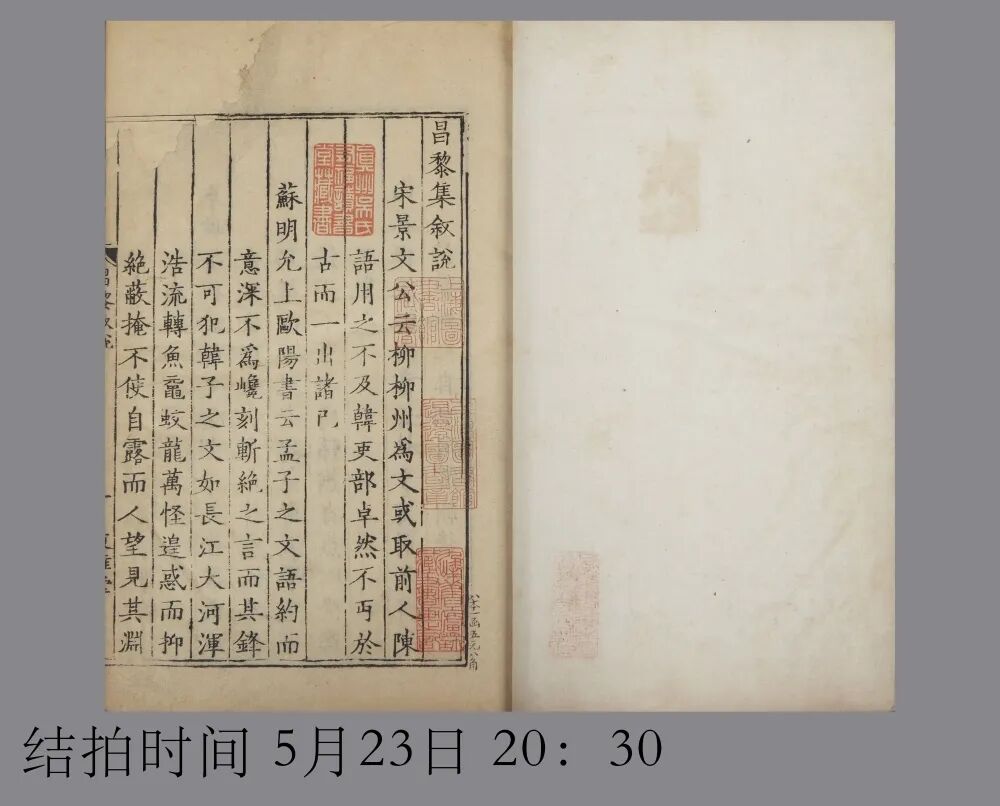 昌黎集敘說
宋景文公云柳柳州爲文或取前人陳
語用之不及韓吏部卓然不丐於
古而一出諸己
蘇明允上歐陽書云孟子之文語約而
意深不爲巉刻斬絕之言而其鋒
不可犯韓子之文如長江大河渾
浩流轉魚黿蛟龍萬怪遑惑而抑
絶蔽掩不使自露而人望見其淵
真州吳氏
有福讀書
堂藏書
结拍时间 5月23日 20：30